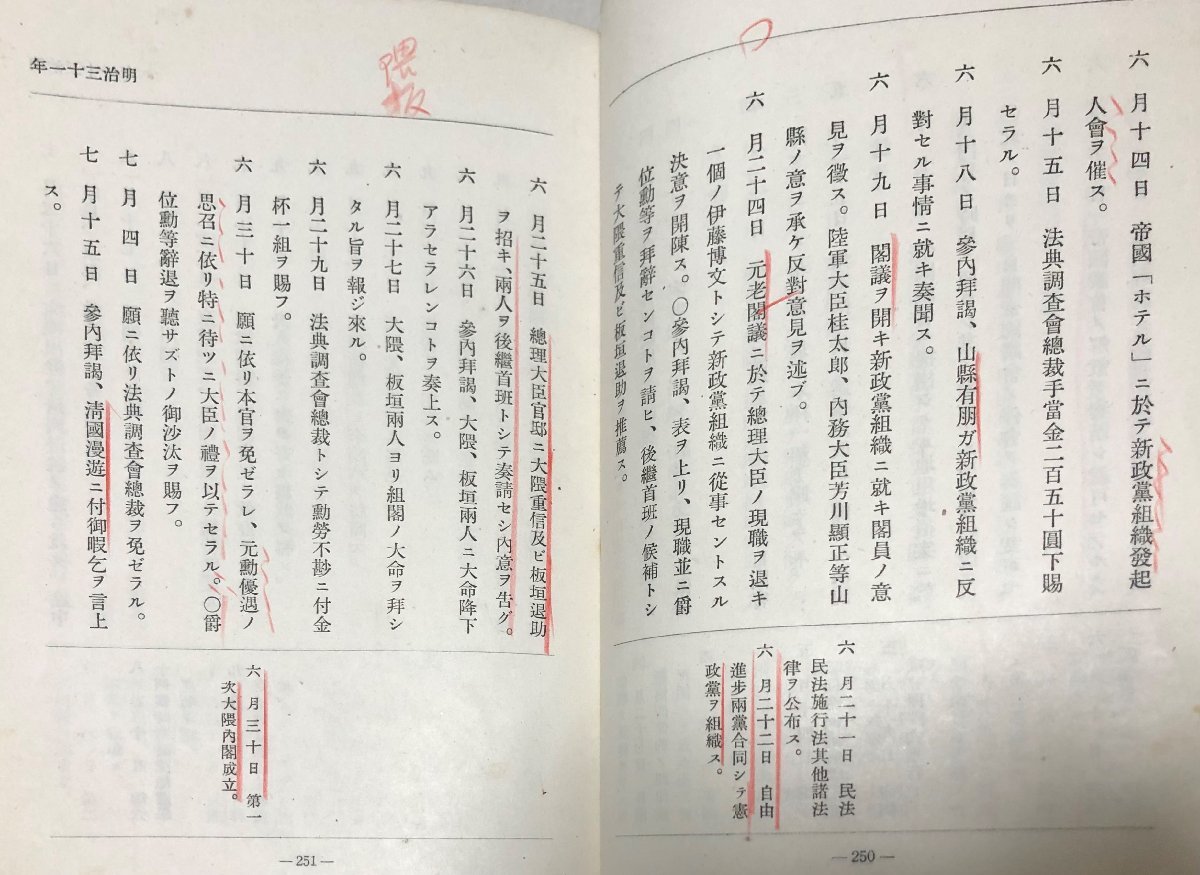 六月十四日 帝國「ホテル」ニ於テ新政黨組織發起
人會ヲ催ス。
六月十五日 法典調査會總裁手當金二百五十圓下賜
セラル。
六月十八日 參內拜謁、山縣有朋ガ新政黨組織ニ反
對セル事情ニ就キ奏聞ス。
六月十九日 閣議ヲ開キ新政黨組織ニ就キ閣員ノ意
見ヲ徵ス。陸軍大臣桂太郎、內務大臣芳川顯正等山
縣ノ意ヲ承ケ反對意見ヲ述ブ。
六月二十四日 元老閣議ニ於テ總理大臣ノ現職ヲ退キ
一個ノ伊藤博文トシテ新政黨組織ニ從事セントスル
決意ヲ開陳ス。〇參內拜謁、表ヲ上リ、現職並ニ爵
位勳等ヲ拜辭センコトヲ請ヒ、後繼首班ノ候補トシ
テ大隈重信及ビ板垣退助ヲ推薦ス。
六月二十一日 民法
民法施行法其他諸法
律ヲ公布ス。
六月二十二日 自由
進步兩黨合同シテ憲
政黨ヲ組織ス。
—250—
明治三十一年
隈板
六月二十五日 總理大臣官邸ニ大隈重信及ビ板垣退助
ヲ招キ、兩人ヲ後繼首班トシテ奏請セシ內意ヲ告グ。
六月二十六日 參內拜謁、大隈、板垣兩人ニ大命降下
アラセラレンコトヲ奏上ス。
六月二十七日 大隈、板垣兩人ヨリ組閣ノ大命ヲ拜シ
タル旨ヲ報ジ來ル。
六月二十九日 法典調査會總裁トシテ勳勞不尠ニ付金
杯一組ヲ賜フ。
六月三十日 願ニ依リ本官ヲ免ゼラレ、元勳優遇ノ
思召ニ依リ特ニ待ツニ大臣ノ禮ヲ以テセラル。〇爵
位勳等辭退ヲ聽サズトノ御沙汰ヲ賜フ。
七月四日 願ニ依リ法典調査會總裁ヲ免ゼラル。
七月十五日 參內拜謁、淸國漫遊ニ付御暇乞ヲ言上
ス。
六月三十日 第一
次大隈內閣成立。
—251—